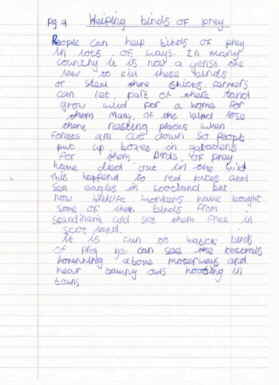 Pg 9 Helping birds of prey
People can help birds of prey
in lots of ways. In many
country it is now a against the
law to kill these birds
or steal there chicks. farmers
can let part of there land
grow wild for a home for
them Many of the lose
there nesting places when
forests are cut down so people
put up boxes on
for them Birds of prey
have died out in the wild
this happend to red kites and
sea eagles in scotland but
now wildlife workers have bought
some of them birds from
and set them free in
scot land.
it is can to birds
of pray you can see the
hovering above motorways and
hear owls hooting in
town